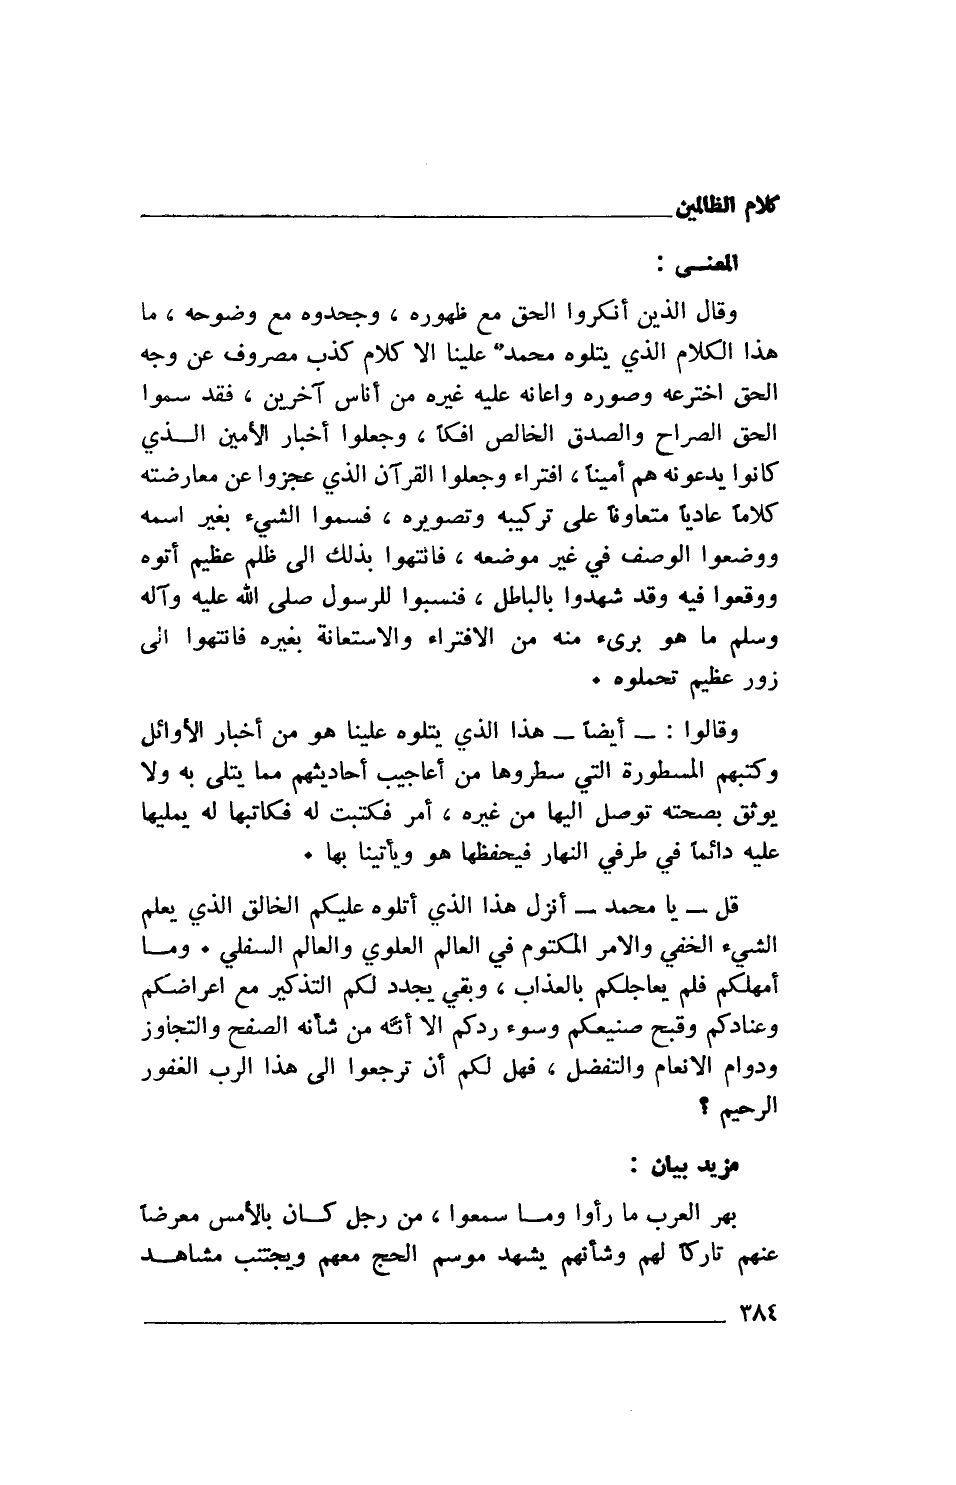 كلام الظالمين
المعنــى :
وقال الذين أنكروا الحق مع ظهوره ، وجحدوه مع وضوحه ، ما
هذا الكلام الذي يتلوه محمدٌ علينا الا كلام كذب مصروف عن وجه
الحق اخترعه وصوره واعانه عليه غيره من أناس آخرين ، فقد سموا
الحق الصراح والصدق الخالص افكاً ، وجعلوا أخبار الأمين الــذي
كانوا يدعونه هم أميناً ، افتراء وجعلوا القرآن الذي عجزوا عن معارضته
كلاماً عادياً متعاوناً على تركيبه وتصويره ، فسموا الشيء بغير اسمه
ووضعوا الوصف في غير موضعه ، فانتهوا بذلك الى ظلم عظيم أتوه
ووقعوا فيه وقد شهدوا بالباطل ، فنسبوا للرسول صلى الله عليه وآله
وسلم ما هو بريء منه من الافتراء والاستعانة بغيره فانتهوا الى
زور عظيم تحملوه .
وقالوا : ــ أيضاً ــ هذا الذي يتلوه علينا هو من أخبار الأوائل
وكتبهم المسطورة التي سطروها من أعاجيب أحاديثهم مما يتلى به ولا
يوثق بصحته توصل اليها من غيره ، أمر فكتبت له فكاتبها له يمليها
عليه دائماً في طرفي النهار فيحفظها هو ويأتينا بها .
قل ــ يا محمد ــ أنزل هذا الذي أتلوه عليكم الخالق الذي يعلم
الشيء الخفي والامر المكتوم في العالم العلوي والعالم السفلي . ومــا
أمهلكم فلم يعاجلكم بالعذاب ، وبقي يجدد لكم التذكير مع اعراضكم
وعنادكم وقبح صنيعكم وسوء ردكم الا أنَّه من شأنه الصفح والتجاوز
ودوام الانعام والتفضل ، فهل لكم أن ترجعوا الى هذا الرب الغفور
الرحيم ؟
مزيد بيان :
بهر العرب ما رأوا ومــا سمعوا ، من رجل كــان بالأمس معرضاً
عنهم تاركاً لهم وشأنهم يشهد موسم الحج معهم ويجتنب مشاهــد
٣٨٤